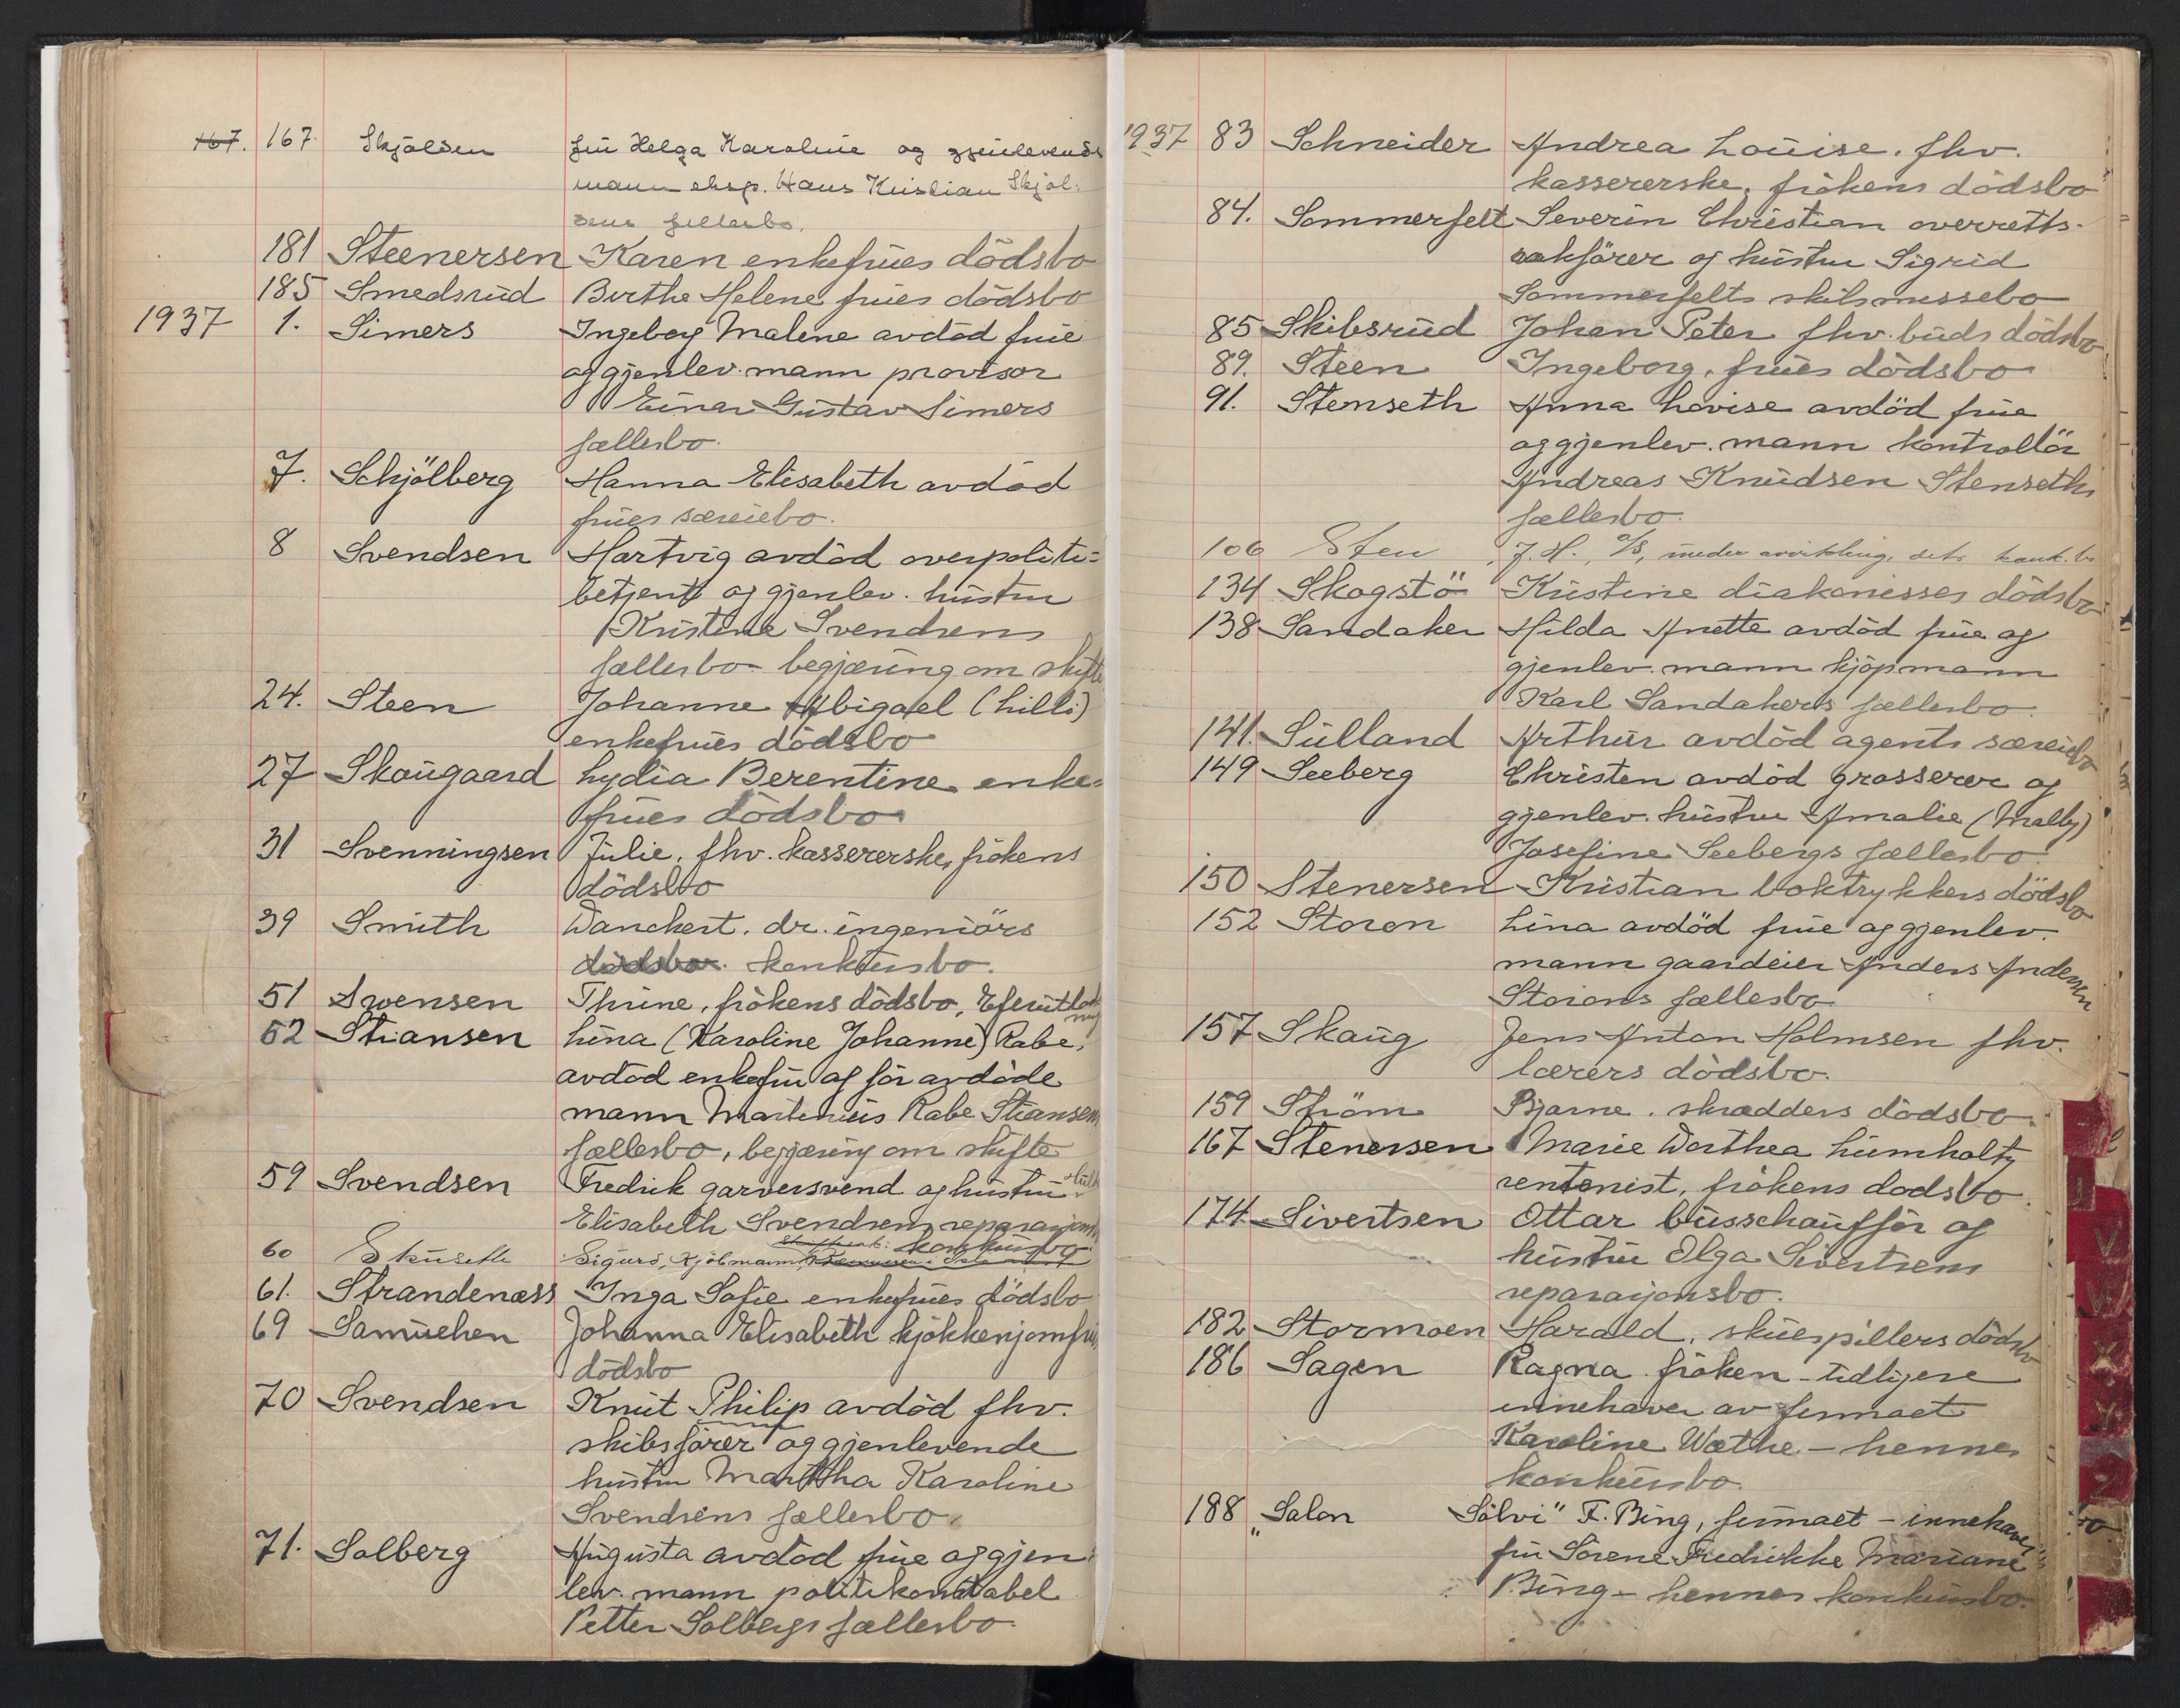 167. 167. Skjölsen fru Helga Karoline og gjenlevende
mann eksp. Hans Kristian Skjöl-
sens fellesbo.
181 Steenersen Karen enkefrues dödsbo
185 Smedsrud Birthe Helene frues dödsbo
1937 1. Simers Ingeborg Malene avdöd frue
og gjenlev. mann provisor
Einar Gustav Simers
fællesbo.
7. Schjölberg Hanna Elisabeth avdöd
frues særeiebo.
8 Svendsen Hartvig avdöd overpoliti-
betjent og gjenlev. hustru
Kristine Svendsens
fællesbo - begjæring om skifte
24. Steen Johanne Abigael (Lilli)
enkefrues dödsbo
27 Skougaard Lydia Berentine enke-
frues dödsbo
31 Svenningsen Julie, fhv. kassererske, frökens
dödsbo
39 Smith Wanckert. dr. ingeniörs
dödsbo. konkursbo.
51 Svensen Thrine, frökens dödsbo,
52 Stiansen Lina (Karoline Johanne) Rabe,
avdöd enkefru og för avdöde
mann Martinius Rabe Stiansens
fællesbo, begjæring om skifte
59 Svendsen Fredrik garversvend og hustru
Elisabeth Svendsens reparasjons
konkursbo
60 Sigurd, Kjöbmann,
61. Strandenæss Inga Sofie enkefrues dödsbo
69 Samuelsen Johanna Elisabeth kjökkenjomfru
dödsbo
70 Svendsen Knut Philip avdöd fhv.
skibsförer og gjenlevende
hustru Martha Karoline
Svendsens fællesbo.
71. Solberg Augusta avdöd frue og gjen-
lev. mann politikonstabel
Petter Solbergs fællesbo.
1937 83 Schneider Andrea Louise. fhv.
kassererske, frökens dödsbo
84. Sommerfelt Severin Christian overretts-
sakförer og hustru Sigrid
Sommerfelts skilsmissebo
85 Skibsrud Johan Peter fhv. buds dödsbo
89. Steen Ingeborg, frues dödsbo
91. Stenseth Anna Lovise avdöd frue
og gjenlev. mann kontrollör
Andreas Knudsen Stenseths
fællesbo.
106 Sten, J. H., A/S, under avvikling, dets konk.bo
134 Skogstö Kristine diakonisses dödsbo
138 Sandaker Hilda Anette avdöd frue og
gjenlev. mann kjöpmann
Karl Sandakers fællesbo.
141. Sülland Arthur avdöd agents særeiebo
149 Seeberg Christen avdöd grosserer og
gjenlev. hustru Amalie (Mally)
Josefine Seebergs fællesbo.
150 Stenersen Kristian boktrykkers dödsbo
152 Storon Lina avdöd frue og gjenlev.
mann gaardeier Anders Andersen
Storons fællesbo
157 Skaug Jens Anton Holmsen fhv.
lærers dödsbo.
159 Ström Bjarne. skrædders dödsbo.
167 Stenersen Marie Dorthea Lumholtz
rentenist, frökens dodsbo.
174. Sivertsen Ottar busschaufför og
hustru Olga Sivertsens
reparasjonsbo.
182 Stormoen Harald, skuespillers dödsbo
186 Sagen Ragna fröken - tidligere
innehaver av firmaet
Karoline Wæthe - hennes
konkursbo
188 "Salon Sölvi" F. Bing, firmaet - innehaver
fru Sörene Fredrikke Mariane
Bing - hennes konkursbo.
U
V
W
X
Y